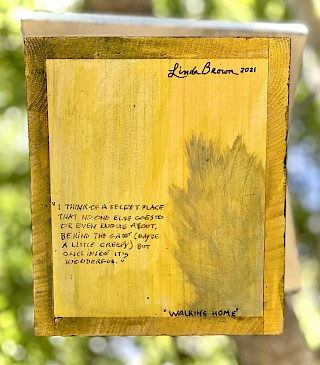 Linda Brown 2021
"I THINK OF A SECRET PLACE
THAT NO ONE ELSE GOES TO
OR EVEN KNOWS ABOUT,
BEHIND THE GATE (MAYBE
A LITTLE CREEPY) BUT
ONCE INSIDE IT'S
WONDERFUL."
"WALKING HOME"